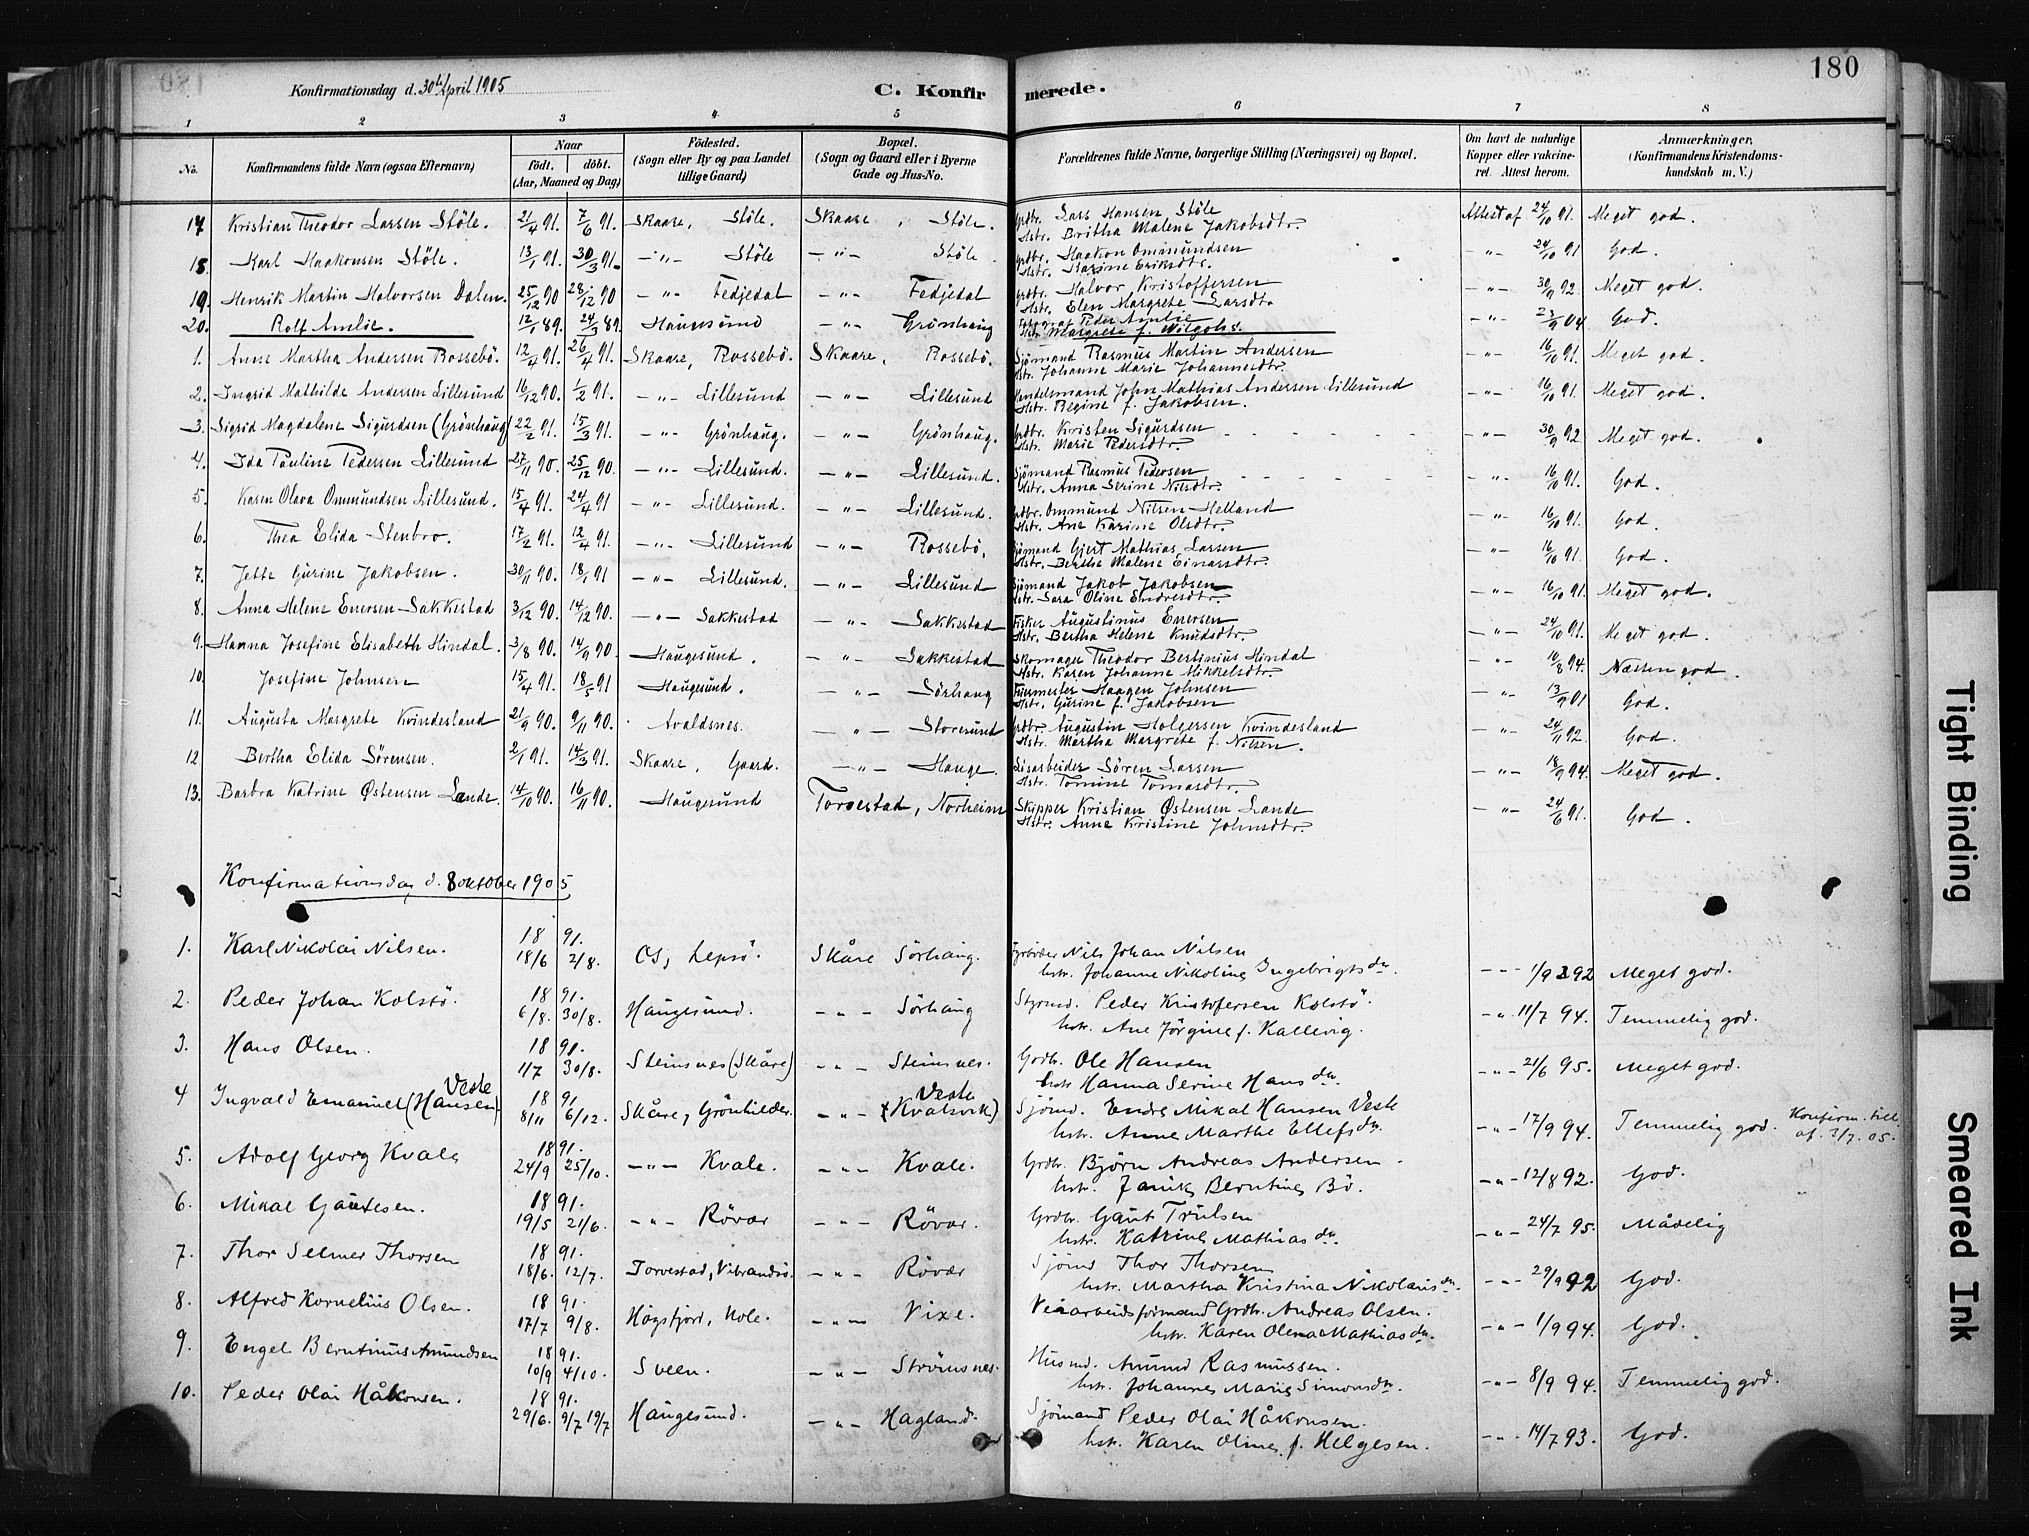 180
Konfirmationsdag d. 30te April 1905
C. Konfirmerede.
1 2 3 4 5 6 7 8
No.
Konfirmandens fulde Navn (ogsaa Efternavn)
Naar
födt. döbt.
(Aar, Maaned og Dag)
Födested.
(Sogn eller By og paa Landet tillige Gaard)
Bopæl.
(Sogn og Gaard eller i Byerne Gade og Hus-No.
Forældrenes fulde Navne, borgerlige Stilling (Næringsvei) og Bopæl.
Om havt de naturlige Kopper eller vakcineret. Attest herom.
Anmærkninger.
(Konfirmandens Kristendomskundskab m. V.)
17 Kristian Theodor Larsen Stöle. 21/4 91. 7/6 91. Skaare, Stöle. Skaare, Stöle. Grdbr. Lars Hansen Stöle Hstr. Britha Malene Jakobsdtr. Attest af 24/10 91. Meget god.
18. Karl Haakonsen Stöle. 13/1 91. 30/3 91. -"- Stöle -"- Stöle. Grdbr. Haakon Ommundsen Hstr. Karine Eriksdtr. -"- 24/10 91 God.
19. Henrik Martin Halvorsen Dalen. 25/12 90 28/12 90 -"- Fedjedal -"- Fedjedal Grdbr. Halvor Kristoffersen Hstr. Elen Margrete Larsdtr -"- 30/9 92. Meget god.
20. Rolf Amlie. 12/1 89. 24/3 89. Haugesund -"- Grönhaug Peder Amlie Hstr. Margrete f. -"- 23/9 04 God.
1. Anne Martha Andersen Rossebö. 12/4 91. 26/4 91. Skaare, Rossebö. Skaare, Rossebö. Sjömand Rasmus Martin Andersen Hstr. Johanne Marie Johannesdtr. -"- 16/10 91. Meget god.
2. Ingrid Mathilde Andersen Lillesund 16/12 90. 1/2 91. -"- Lillesund -"- Lillesund Handelsmand John Mathias Andersen Lillesund Hstr. Regine f. Jakobsen. -"- 16/10 91. Meget god.
3. Sigrid Magdalene Sigurdsen (Grönhaug) 22/2 91. 15/3 91. -"- Grönhaug. -"- Grönhaug. Grdbr. Kristen Sigurdsen Hstr. Marie Pedersdtr. -"- 30/9 92. Meget god.
4. Ida Pauline Pedersen Lillesund 27/11 90. 25/12 90. -"- Lillesund. -"- Lillesund. Sjömand Rasmus Pedersen Hstr. Anna Serine Nilsdtr. -"- 16/10 91. God.
5. Karen Olava Ommundsen Lillesund. 15/4 91. 24/4 91 -"- Lillesund. -"- Lillesund. Grdbr. Ommund Nilsen Helland Hstr. Ane Karine Olsdtr. -"- 16/10 91. God.
6. Thea Elida Stenbro. 17/2 91. 12/4 91. -"- Lillesund -"- Rossebö, Sjömand Gjert Mathias Larsen Hstr. Berthe Malene Einarsdtr. -"- 16/10 91. God.
7. Jette Gurine Jakobsen. 30/11 90. 18/1 91 -"- Lillesund. -"- Lillesund Sjömand Jakob Jakobsen Hstr. Sara Oline Endresdtr. -"- 16/10 91. Meget god.
8. Anna Helene Enersen Sakkestad 3/12 90. 14/12 90. -"- Sakkestad -"- Sakkestad Fisker Augustinus Enersen Hstr. Bertha Helene Knudsdtr. -"- 24/10 91. Meget god.
9. Hanna Josefine Elisabeth Hindal. 3/8 90. 14/9 90. Haugesund. -"- Sakkestad Skomager Theodor Bertinius Hindal Hstr. Karen Johanne Mikkelsdtr. -"- 10/8 94. Næsten god.
10. Josefine Johnsen 15/4 91. 18/5 91 Haugesund. -"- Sörhaug Haagen Johnsen Hstr. Gurine f. Jakobsen -"- 13/9 01 God.
11. Augusta Margrete Kvindesland 21/9 90. 9/11 90. Avaldsnes. -"- Storesund Grdbr. Augustin Holgersen Kvindesland Hstr. Martha Margrete f. Nilsen. -"- 24/11 92. God.
12 Bertha Elida Sörensen. 2/1 91. 14/3 91. Skaare, Gaard. -"- Hauge. Lösarbeider Sören Larsen Hstr. Tomine Tomasdtr. -"- 18/9 94. Meget god.
13. Barbra Katrine Østensen Lande. 14/10 90. 16/11 90. Haugesund Torvestad, Norheim Skipper Kristian Østensen Lande Hstr. Anne Kristine Johnsdtr. -"- 24/6 91. God.
Konfirmationsdag d. 8 oktober 1905
1. Karl Nikolai Nilsen. 18 91. 18/6 2/8. Os, Lepsö. Skåre Sörhaug. Nils Johan Nilsen hstr. Johanne Nikoline Ingebrigtsdtr. -"- 1/9 92 Meget god.
2. Peder Johan Kolstö. 18 91. 6/8. 30/8. Haugesund. -"- Sörhaug Styrmd. Peder Kristofersen Kolstö. hstr. Ane Jörgine f. Kallevig. -"- 11/7 94. Temmelig god.
3. Hans Olsen. 18 91. 1/7 30/8. Steinsnes (Skåre) -"- Steinsnes. Grdbr. Ole Hansen hstr Hanna Serine Hansdtr. -"- 21/6 95. Meget god.
4 Ingvald Emanuel (Hansen) Veste 18 91 8/11 6/12. Skåre, Grönhilder. -"- Veste (Kvalsvik) Sjömd. Endre Mikal Hansen Veste hstr. Anne Marthe Ellefsdtr. -"- 17/9 94. Temmelig god. Konfirm. till. af. 3/7. 05.
5. Adolf Georg Kvale 18 91. 24/9 25/10. -"- Kvale. -"- Kvale. Grdbr. Björn Andreas Andersen. hstr. Janike Berntine Bö. -"- 12/8 92. God.
6. Mikal Gautesen. 18 91. 19/5 21/6. -"- Rövær -"- Rövær. Grdbr. Gaut Trulsen hstr. Katrine Mathiasdtr. -"- 24/7 95. Mådelig
7. Thor Selmer Thorsen 18 91. 18/6. 12/7. Torvestad, Vibrandsö. -"- Rövær Sjömd Thor Thorsen hstr. Martha Kristina Nikolaisdtr. -"- 29/9 92 God.
8. Alfred Kornelius Olsen. 18 91. 17/7 9/8. Högsfjord, Hole. -"- Vixe. Veiarbeidsformand Grdbr. Andreas Olsen. hstr. Karen Olena Mathiasdtr. -"- 1/9 94. God.
9. Engel Berntinus Amundsen 18 91. 10/9 4/10. Sveen. -"- Strömsnes. Husmd. Amund Rasmussen. hstr. Johannes Marie Simonsdtr. -"- 8/9 94. Temmelig god.
10. Peder Olai Håkonsen. 18 91. 29/6. 9/7 19/7 Haugesund. -"- Hagland. Sjömand Peder Olai Håkonsen. hstr. Karen Oline f. Helgesen. -"- 14/7 93. God.
Tight Binding
Smeared Ink